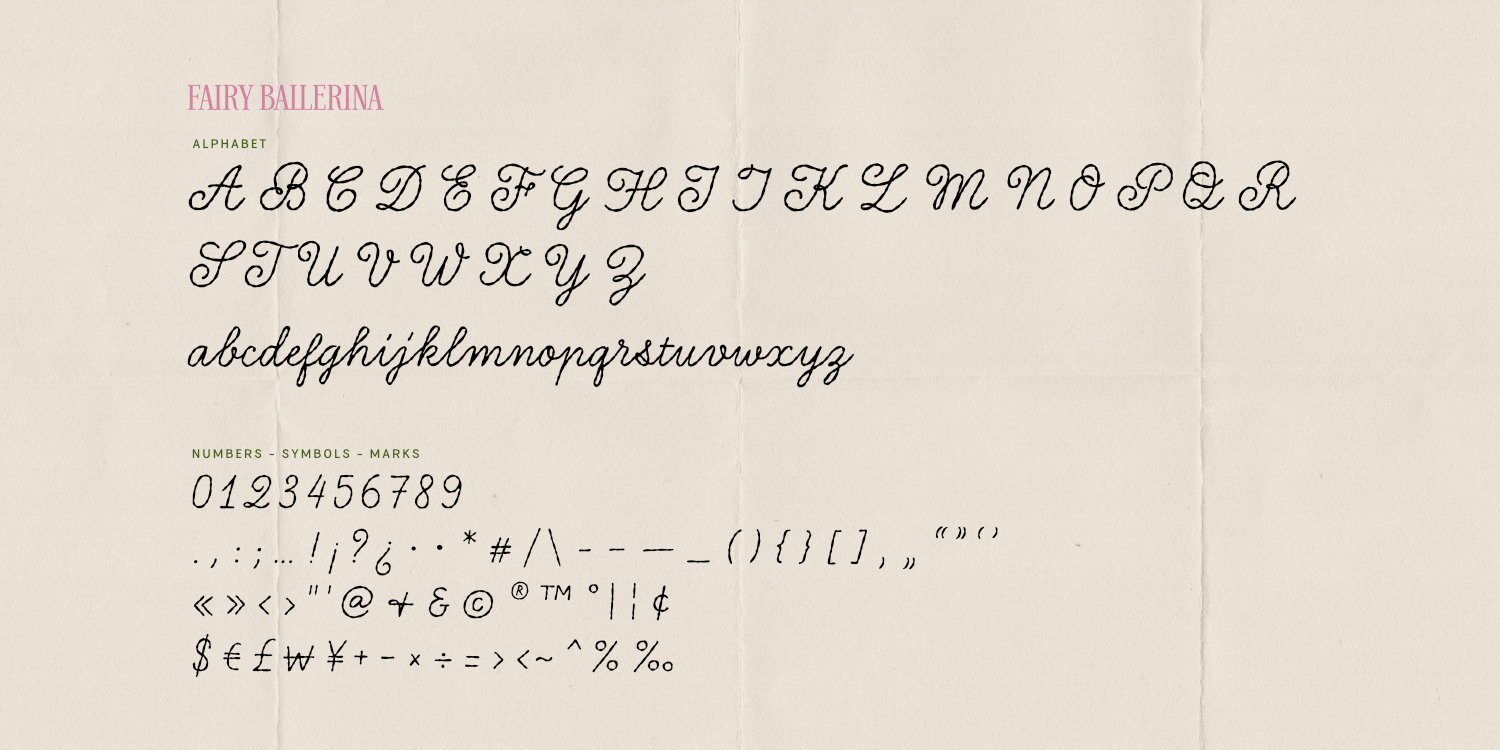 FAIRY BALLERINA
ALPHABET
A B C D E F G H I J K L M N O P Q R
S T U V W X Y Z
abcdefghijklmnopqrstuvwxyz
NUMBERS - SYMBOLS - MARKS
0123456789
. , : ; … ! ¡ ? ¿ · • * # / \ - – — _ ( ) { } [ ] ‚ „ “ ” ‘ ’
« » ‹ › " ' @ & & © ® ™ ° | ¦ ¢
$ € £ ₩ ¥ + − × ÷ = > < ~ ^ % ‰